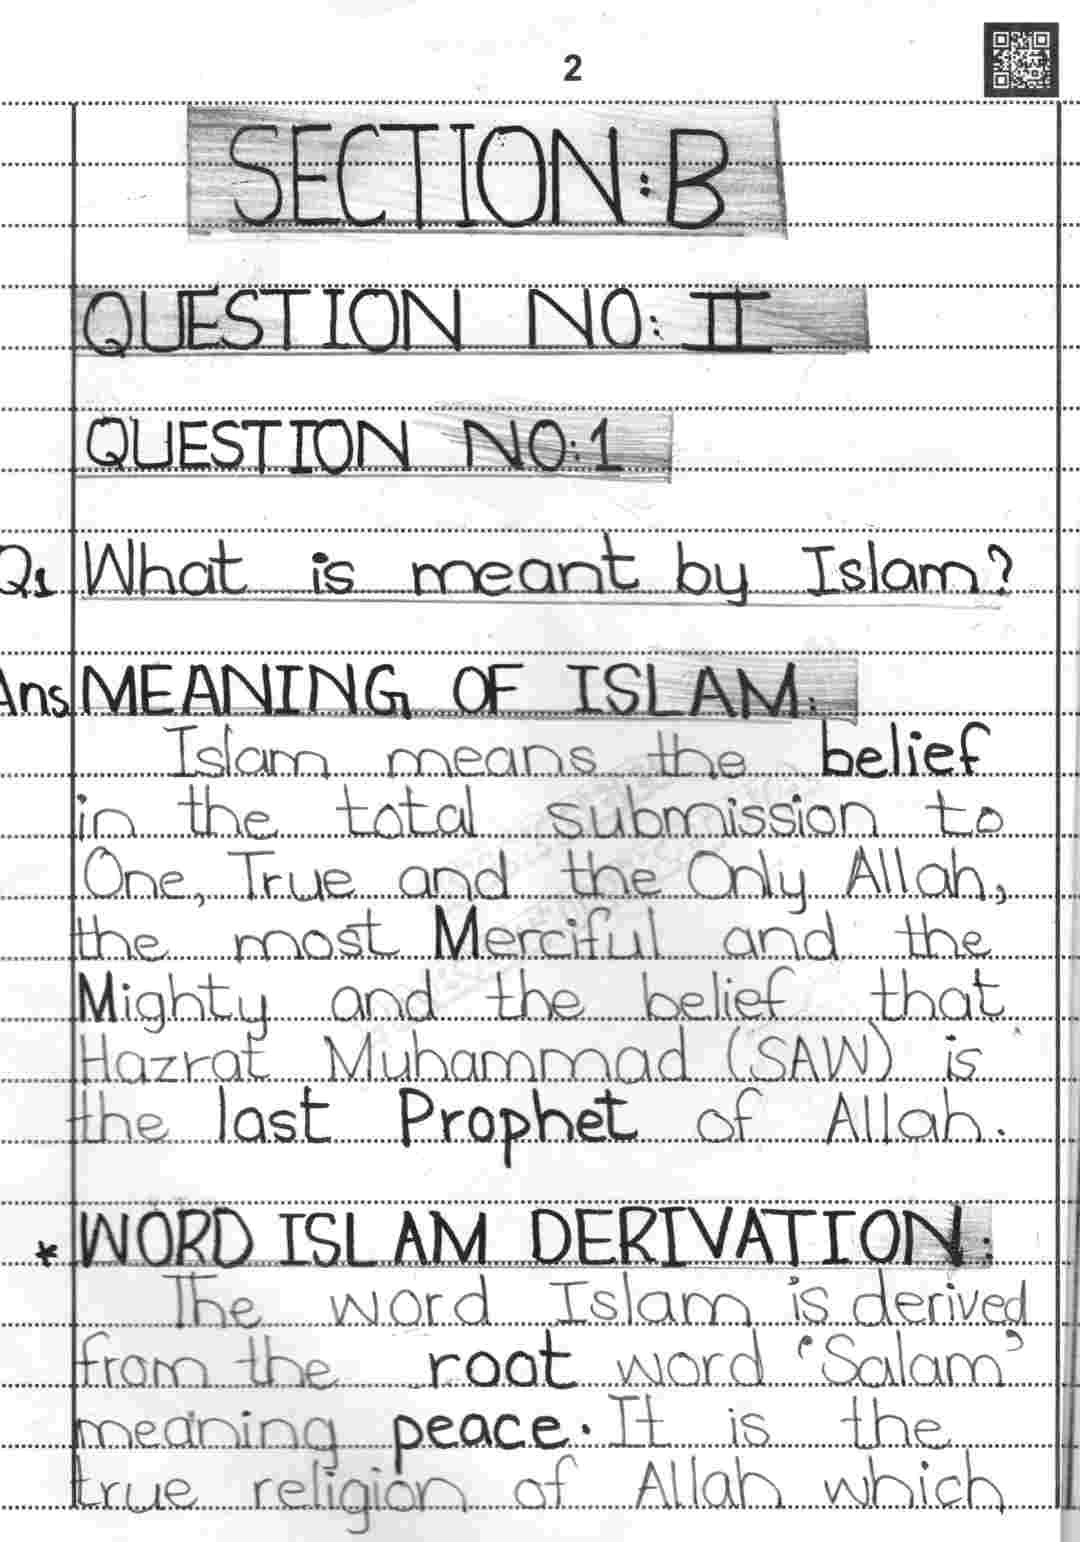 2
SECTION:B
QUESTION NO: II
QUESTION NO:1
Q1 What is meant by Islam?
Ans MEANING OF ISLAM:
Islam means the belief
in the total submission to
One, True and the Only Allah,
the most Merciful and the
Mighty and the belief that
Hazrat Muhammad (SAW) is
the last Prophet of Allah.
* WORD ISLAM DERIVATION:
The word Islam is derived
from the root word 'Salam'
meaning peace. It is the
true religion of Allah which